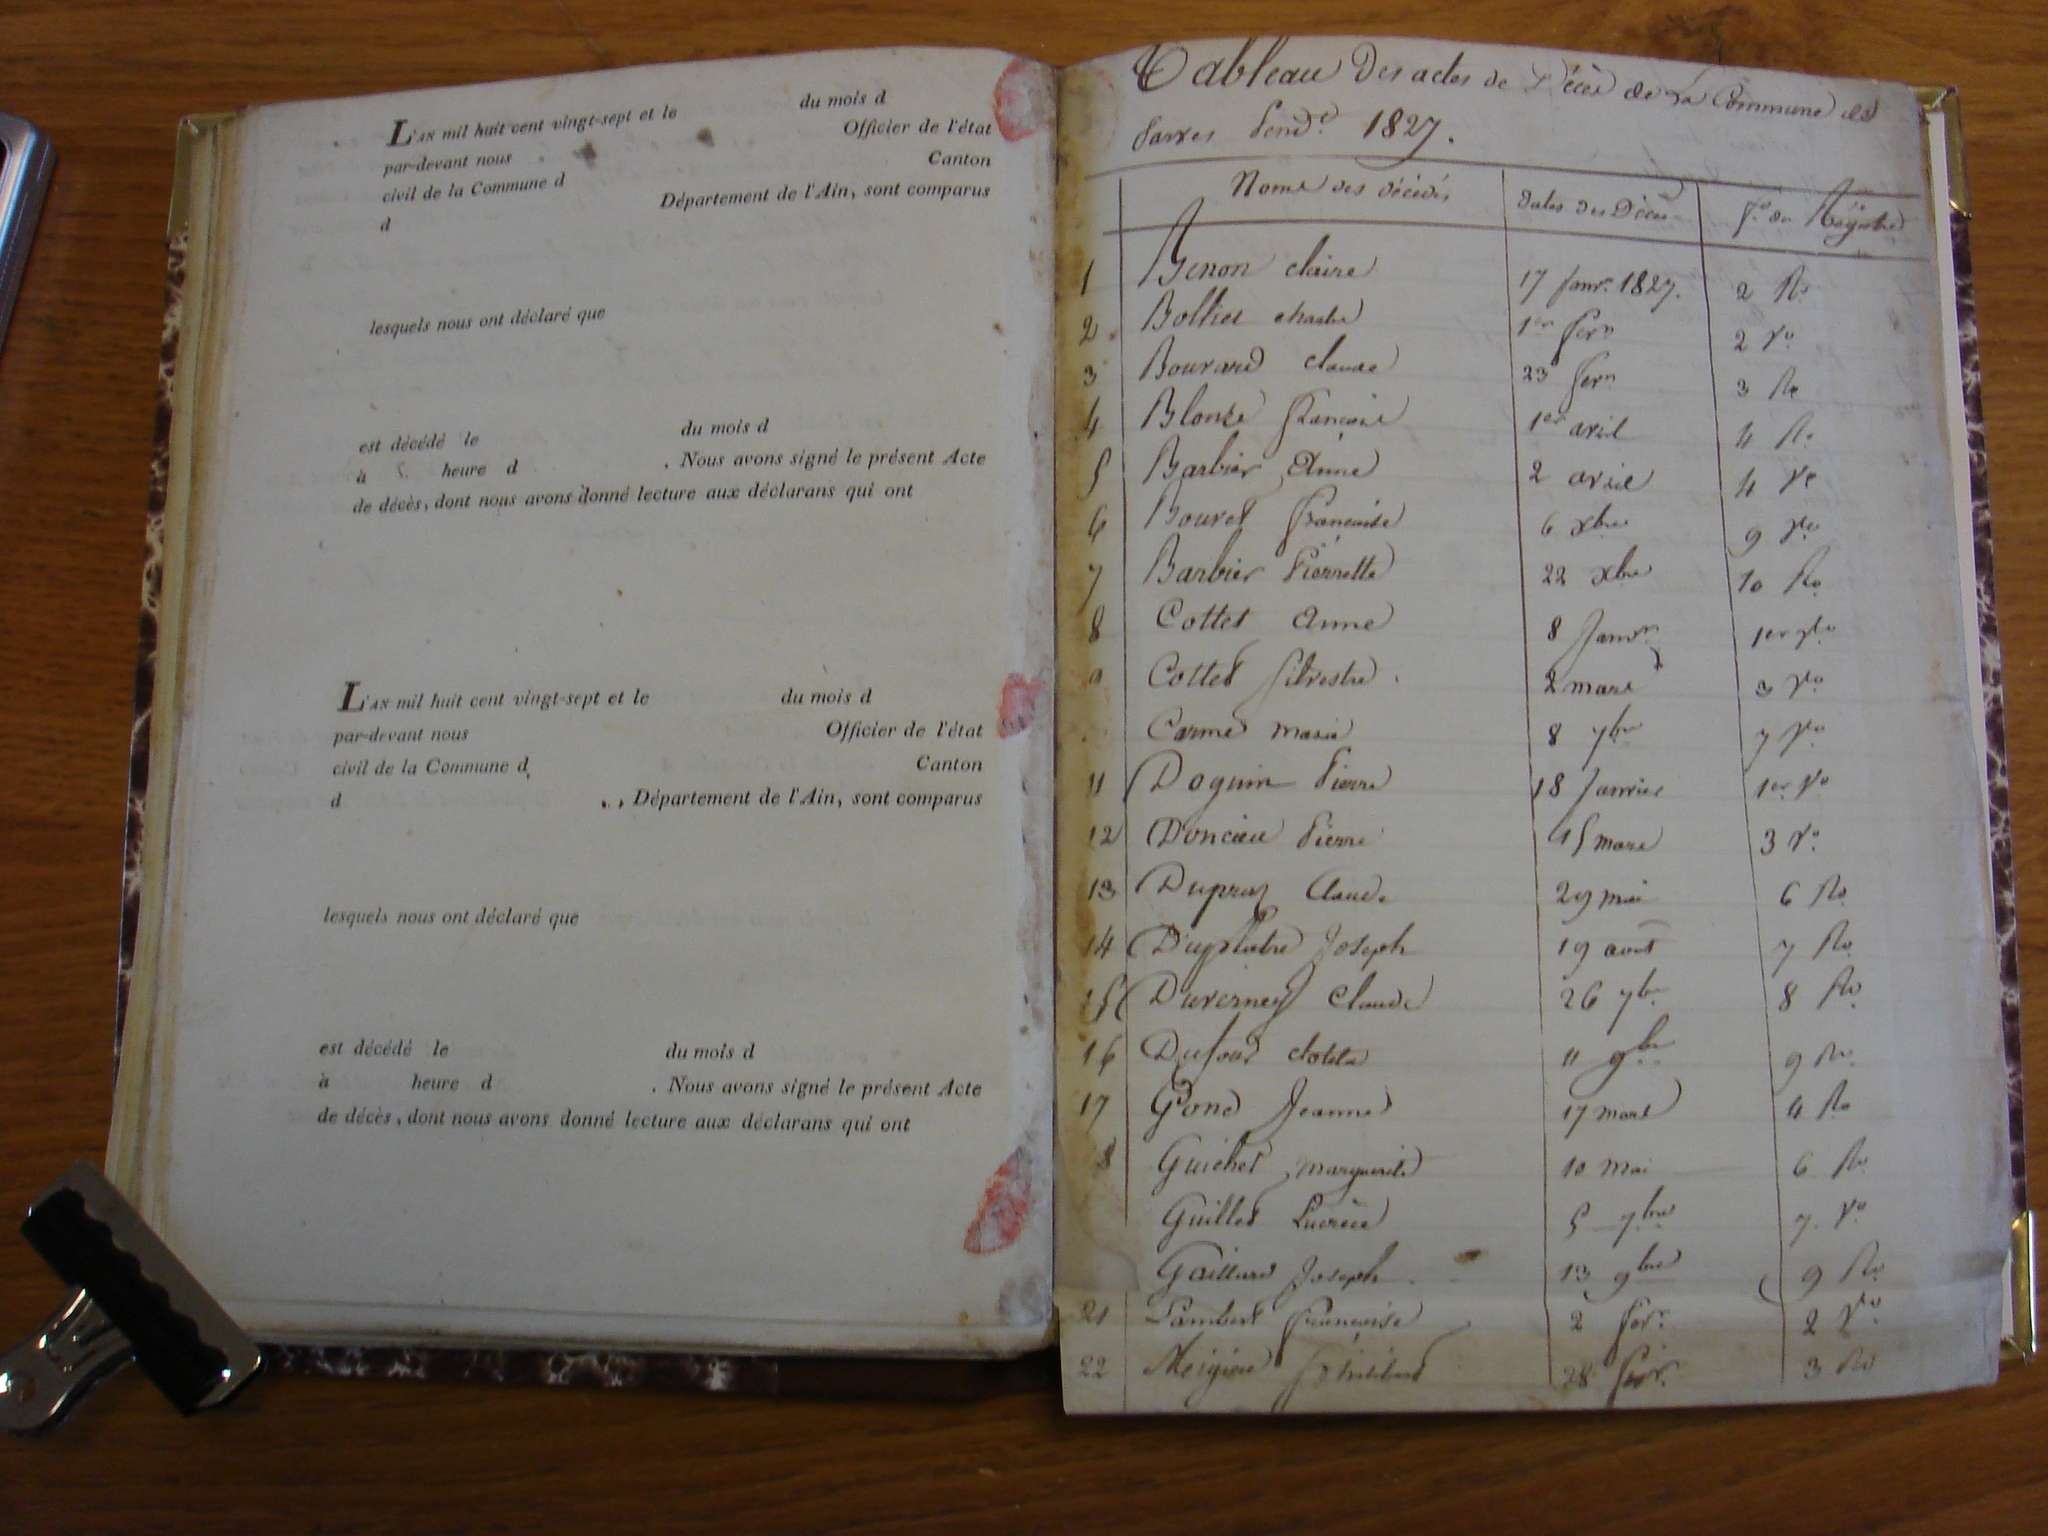 L'AN mil huit cent vingt-sept et le du mois d
par-devant nous Officier de l'état
civil de la Commune d Canton
d Département de l'Ain, sont comparus
lesquels nous ont déclaré que
est décédé le du mois d
à heure d . Nous avons signé le présent Acte
de décès, dont nous avons donné lecture aux déclarans qui ont
L'AN mil huit cent vingt-sept et le du mois d
par-devant nous Officier de l'état
civil de la Commune d Canton
d Département de l'Ain, sont comparus
lesquels nous ont déclaré que
est décédé le du mois d
à heure d . Nous avons signé le présent Acte
de décès, dont nous avons donné lecture aux déclarans qui ont
Tableau Des actes de Décès de La Commune de
1827.
Noms des décédés dates des Décès fo. du Régistre
1 Genon claire 17 Janv. 1827. 2 Ro
2 Bolliet 1er fevr 2 Vo
3 Bouvard claude 23 fevr 3 Ro
4 françoise 1er avril 4 Ro
5 Barbier Anne 2 avril 4 Vo
6 Bouvet françoise 6 xbre 9 Vo
7 Barbier Pierrette 22 xbre 10 Ro
8 Cottet Anne 8 Janvr 1er Vo
9 Cottet Silvestre 2 mars 3 Vo
Carme marie 8 7bre 7 Vo
11 Doguin Pierre 18 Janvier 1er Vo
12 Doncieu Pierre 15 mars 3 Vo
13 Dupraz Claude 29 mai 6 Ro
14 Duplatre Joseph 19 août 7 Ro
15 Duverney Claude 26 7bre 8 Ro
16 Dufour 11 9bre 9 Ro
17 Gond Jeanne 17 mars 4 Ro
8 Guichet marguerite 10 mai 6 Ro
Guillet Lucrèce 5 7bre 7 Vo
Gaillard Joseph 13 9bre 9 Ro
21 Lambert françoise 2 fevr. 2 Vo
22 Philibert 28 fevr. 3 Ro